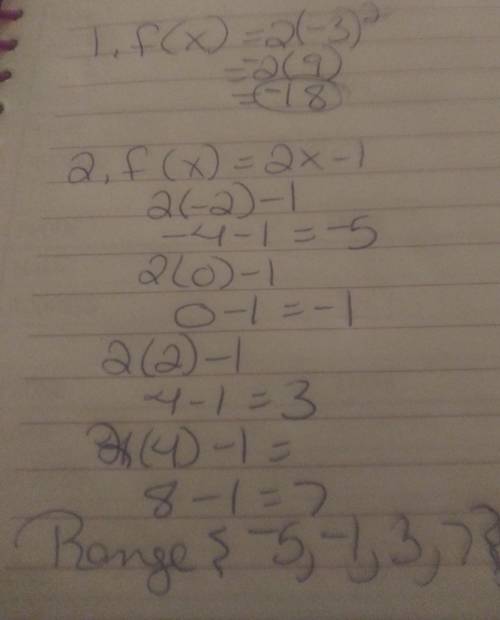 1. f(x) = 2(-3)²
= -2(9)
= -18
2. f(x) = 2x - 1
2(-2) - 1
-4 - 1 = -5
2(0) - 1
0 - 1 = -1
2(2) - 1
4 - 1 = 3
2(4) - 1 =
8 - 1 = 7
Range { -5, -1, 3, 7}